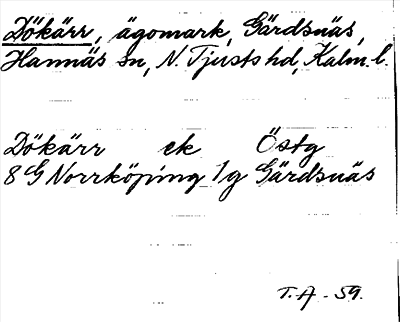 Dökärr, ägomark, Gärdsnäs,
Hannäs sn, N. Tjusts hd, Kalm. l.
Dökärr ek Östg
8G Norrköping 1g Gärdsnäs
T.A. - 59.